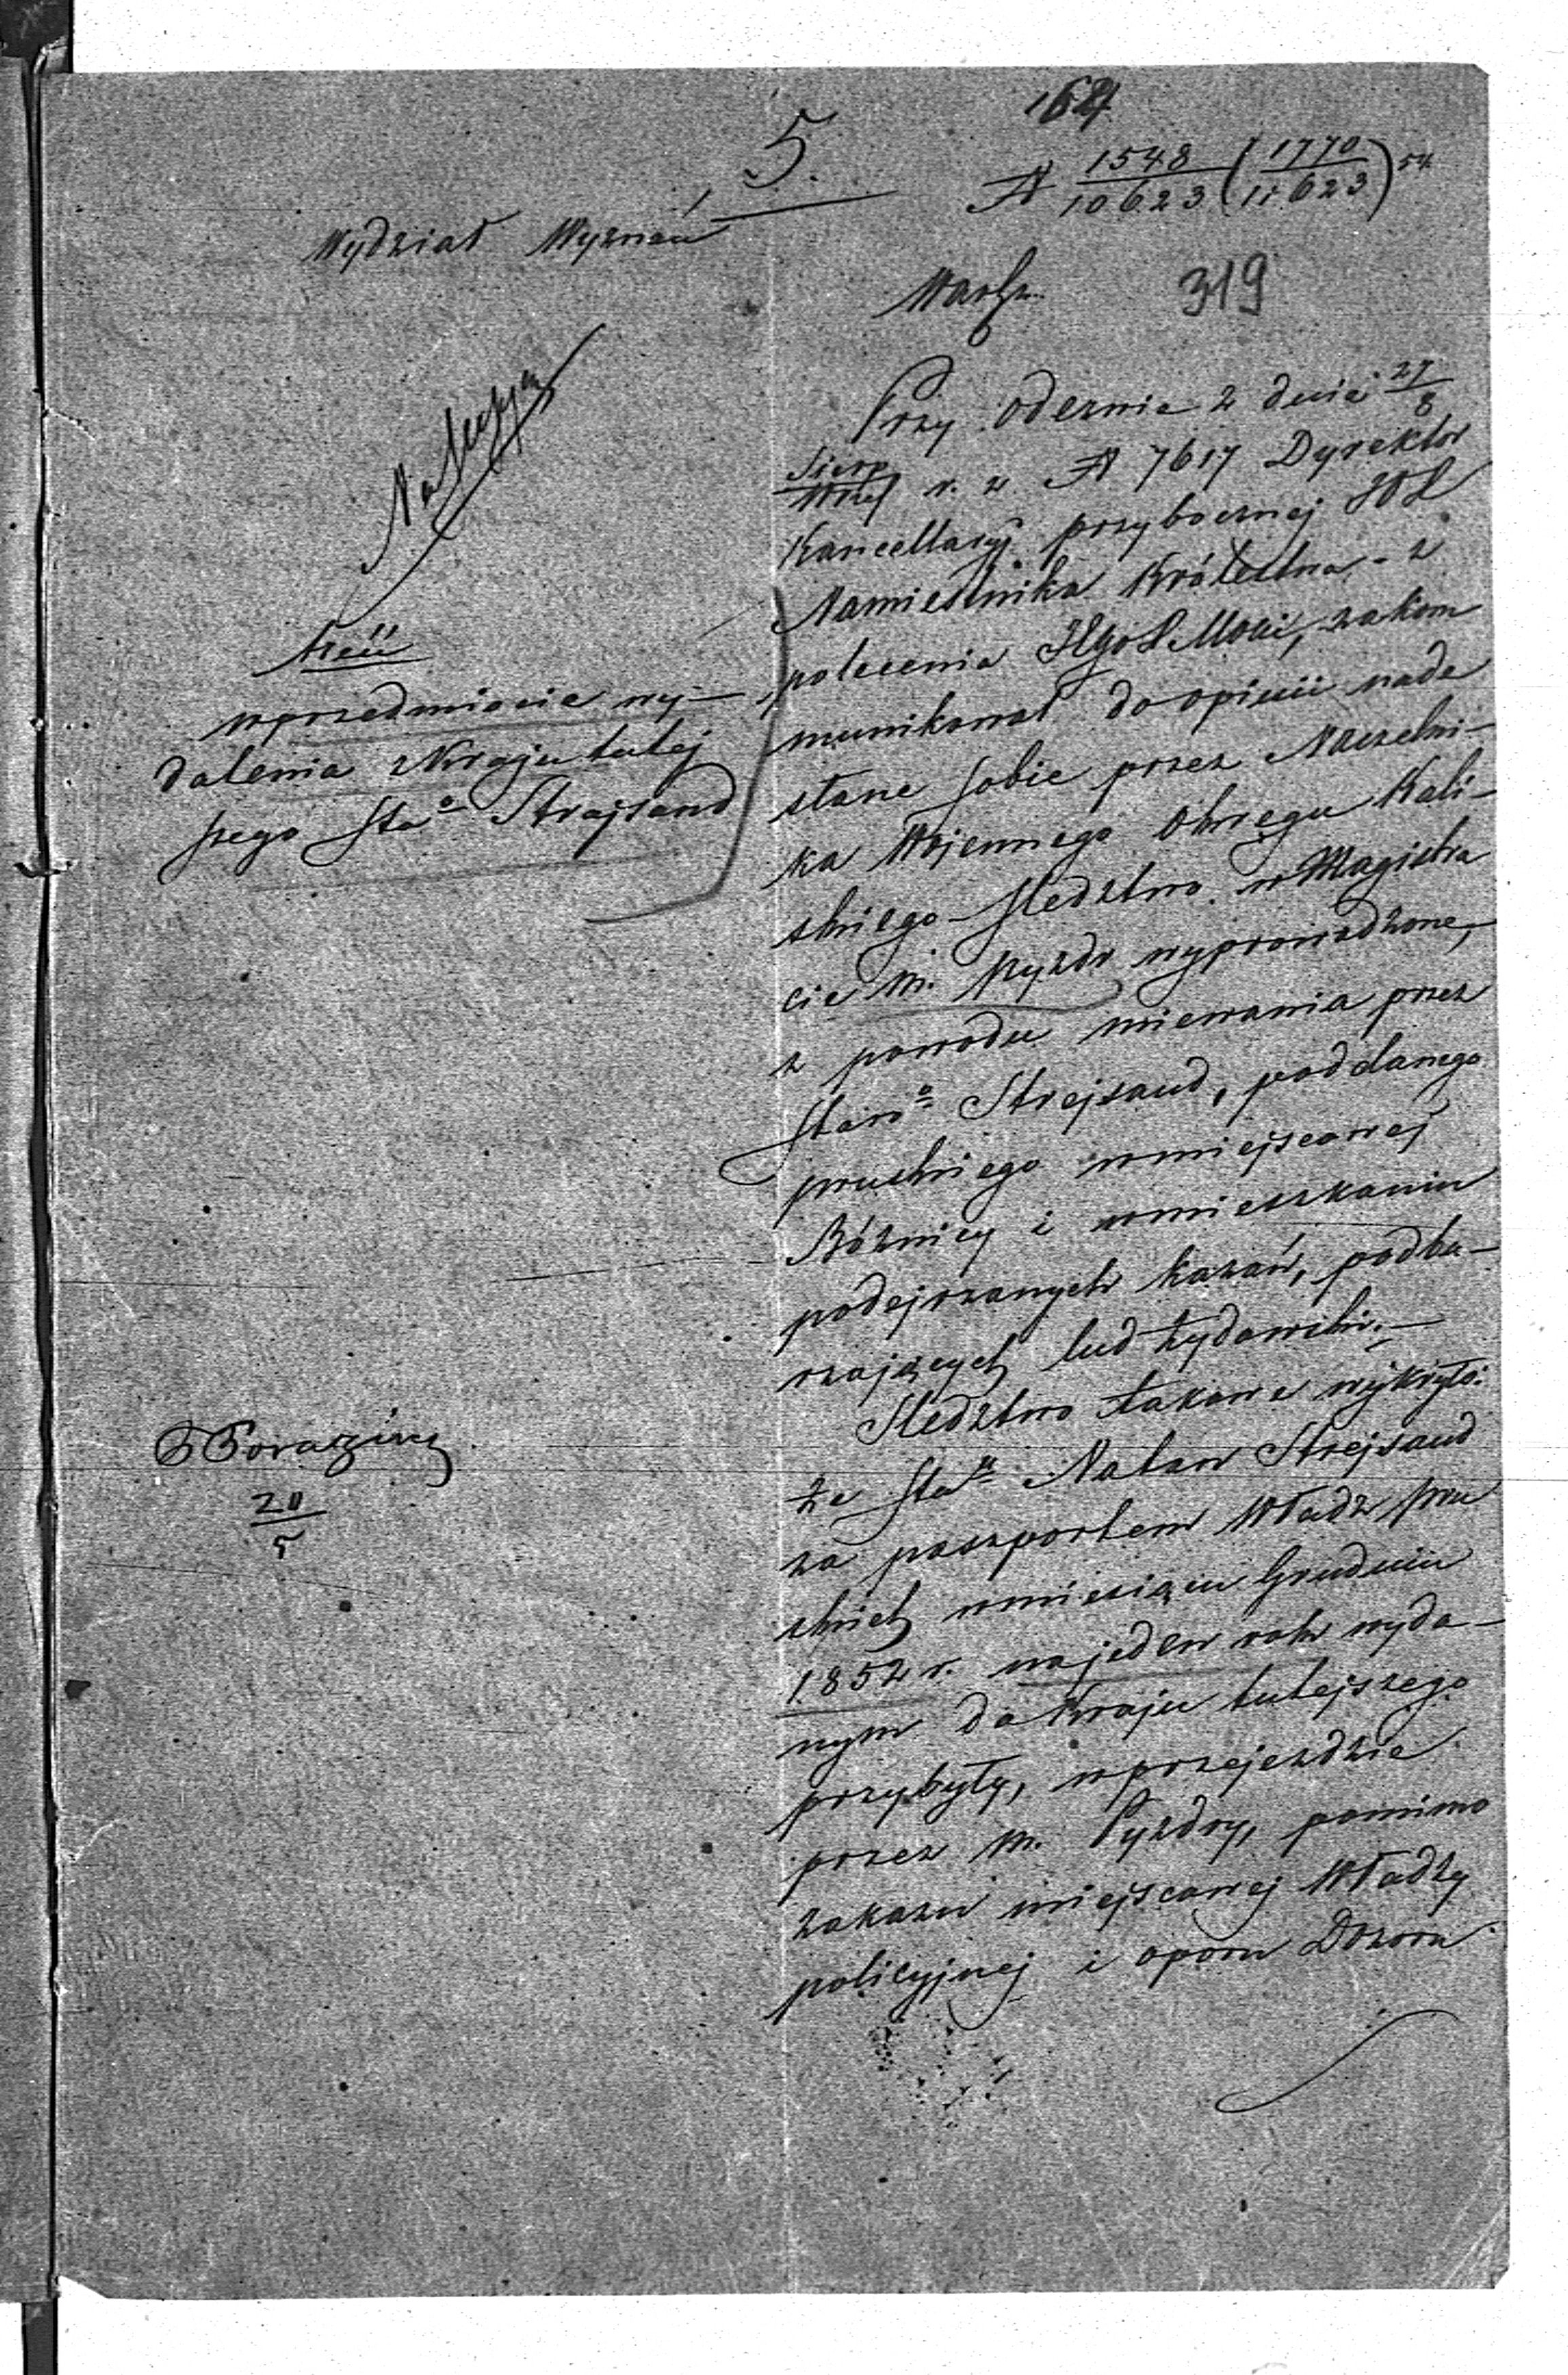 164
5.
N 1548/10623 (1770/11623) 54
Wydział Wyznań
Warsz.
319
Treść
w przedmiocie wy-
dalenia z Kraju tutej
szego Sta° Strajsand
Przy odezwie z dnia 27/8
Sierp/Wrześ r. z. N 7617 Dyrektor
Kancellaryi przybocznej JOX
Namiestnika Królestwa - z
polecenia JJgo Mości, zakom
munikował do opinii nade
słane sobie przez Naczelni-
ka Wojennego Okręgu Kali-
skiego Śledztwo w Magistra
cie m. Pyzdr wyprowadzone,
z powodu miewania przez
Starn° Strejsand, poddanego
pruskiego w miejscowej
Bóżnicy i w mieszkaniu
podejrzanych kazań, podbu-
rzających lud żydowski.-
Śledztwo takowe wykryło:
że Sta° Natan Strejsand
za paszportem Władz pru
skich w miesiącu Grudniu
1852 r. na jeden rok wyda-
nym do Kraju tutejszego
przybyły, w przejezdzie
przez m. Pyzdry, pomimo
zakazu miejscowej Władzy
policyjnej i oporu Dozoru
20/5